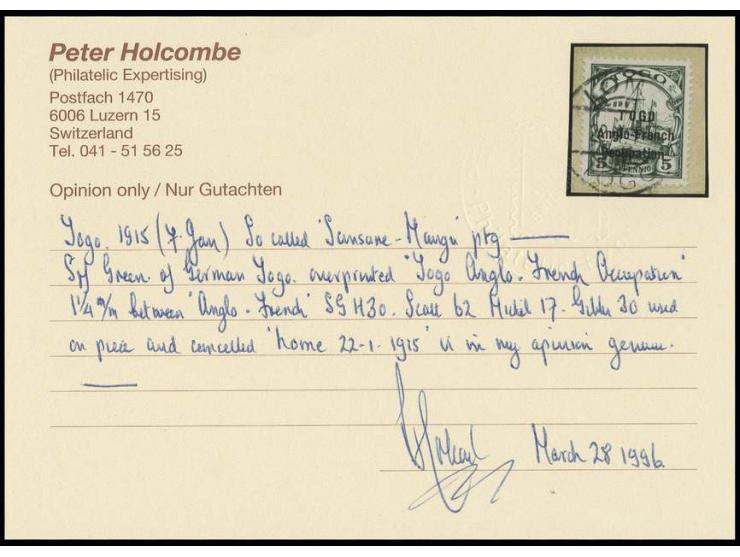 Peter Holcombe
(Philatelic Expertising)
Postfach 1470
6006 Luzern 15
Switzerland
Tel. 041 - 51 56 25
TOGO
TOGO
Anglo-French
Occupation
5 PFENNIG 5
Opinion only / Nur Gutachten
Togo. 1915 (7. Jan) So called 'Sansane-Mangu' ptg —
5pf Green of German Togo. overprinted "Togo Anglo-French Occupation"
1¼ m/m between 'Anglo-French' SG H30. Scott 62 Michel 17. Gibbs 30 used
on piece and cancelled 'home 22-1-1915' is in my opinion genuine.
March 28 1996.